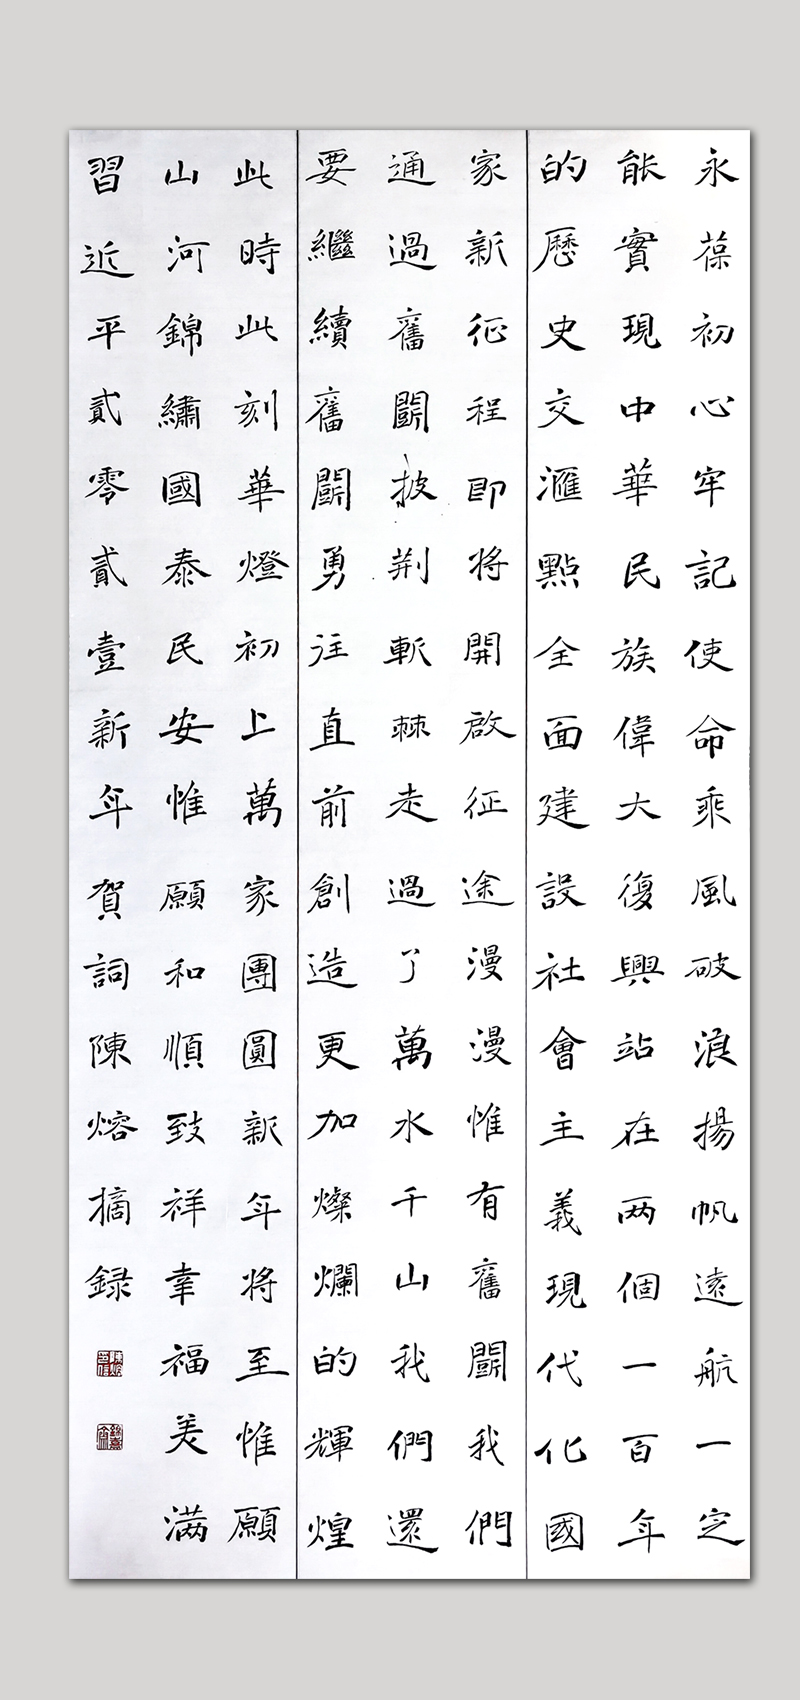 永葆初心牢記使命乘風破浪揚帆遠航一定
能實現中華民族偉大復興站在两個一百年
的歷史交滙點全面建設社會主義現代化國
家新征程即将開啟征途漫漫惟有奮鬪我們
通過奮鬪披荆斬棘走過了萬水千山我們還
要繼續奮鬪勇往直前創造更加燦爛的輝煌
此時此刻華燈初上萬家團圓新年将至惟願
山河錦繡國泰民安惟願和順致祥幸福美满
習近平貳零貳壹新年賀詞陳熔摘録